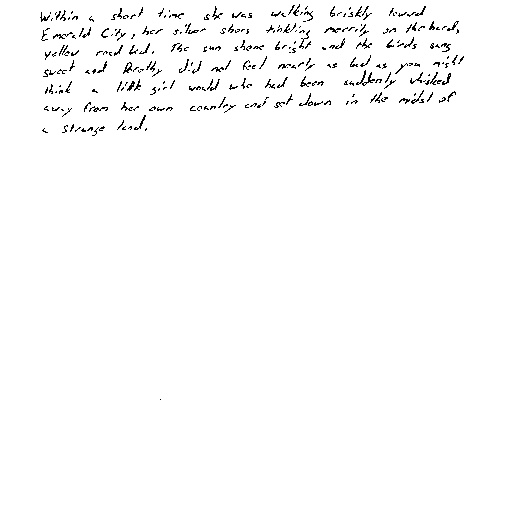 Within a short time she was walking briskly toward
Emerald City, her silver shoes tinkling merrily on the hard,
yellow road bed. The sun shone bright and the birds sang
sweet and Dorothy did not feel nearly as bad as you might
think a little girl would who had been suddenly whisked
away from her own country and set down in the midst of
a strange land.